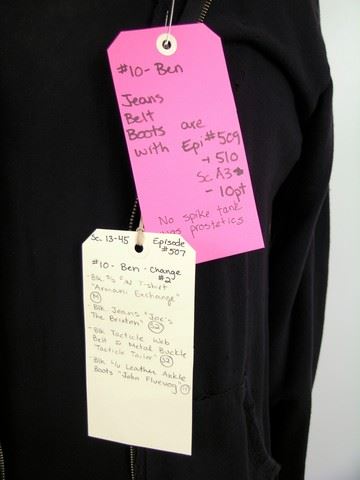 #10 - Ben
Jeans
Belt
Boots are
with Epi #509
+ 510
Sc A3
- 10pt
No spike tank
was prostetics
Sc. 13-45 Episode
#507
#10 - Ben - Change
#2
- Blk S/S "V" T-shirt
"Armani Exchange"
M
- Blk Jeans "Joe's
The Brixton" 32
- Blk Tacticle Web
Belt c Metal Buckle
"Tacticle Tailor" 32
- Blk L/u Leather Ankle
Boots "John Fluevog"